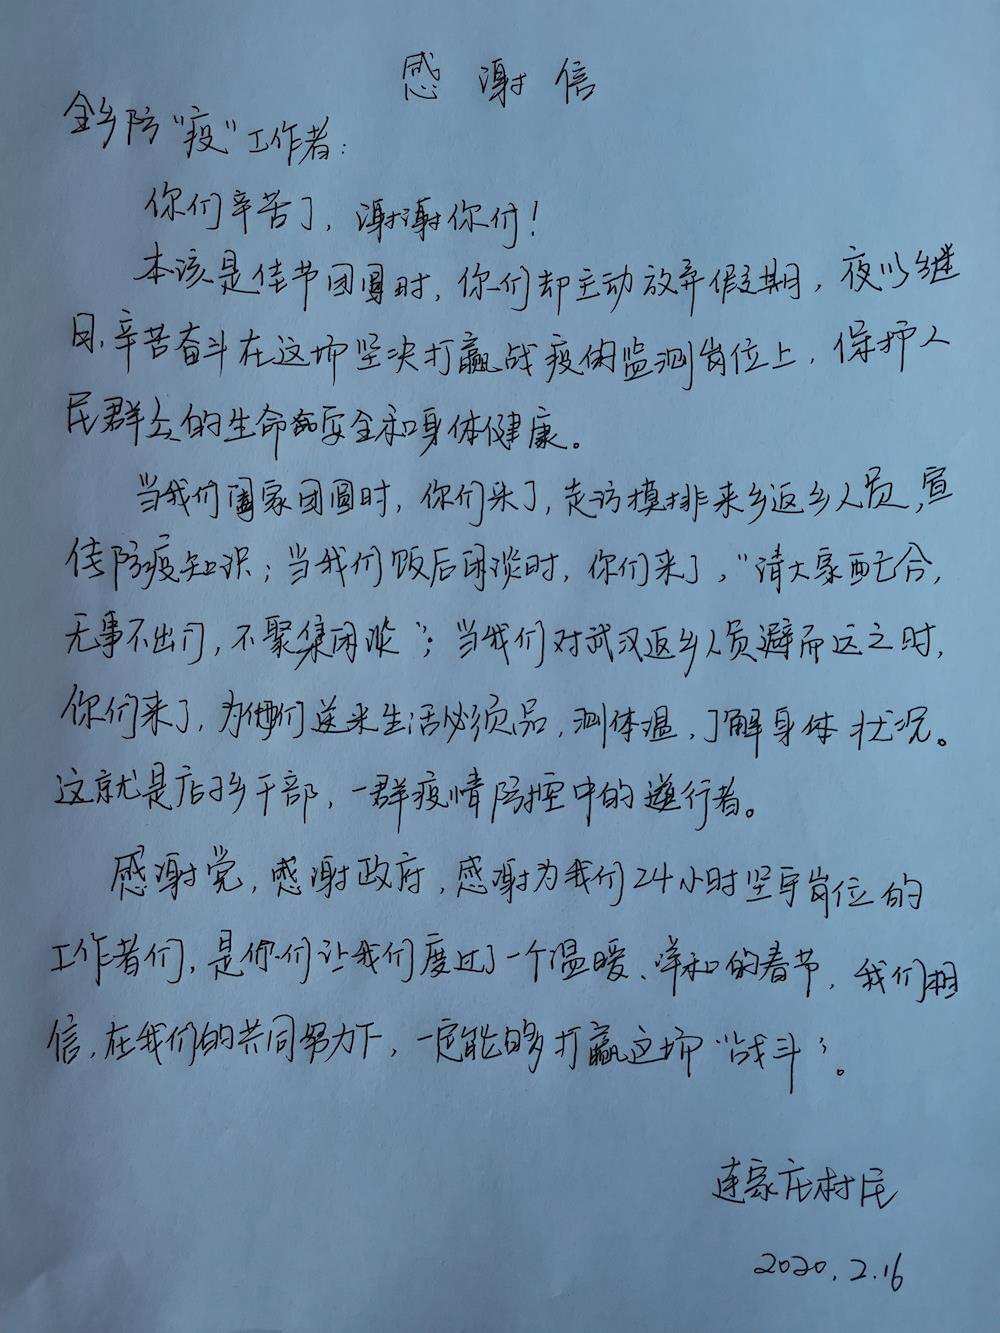 感谢信
全乡防“疫”工作者：
你们辛苦了，谢谢你们！
本该是佳节团圆时，你们却主动放弃假期，夜以继
日，辛苦奋斗在这场坚决打赢战疫的监测岗位上，保护人
民群众的生命安全和身体健康。
当我们阖家团圆时，你们来了，走访摸排来乡返乡人员，宣
传防疫知识；当我们饭后闲谈时，你们来了，“请大家配合，
无事不出门，不聚集闲谈”；当我们对武汉返乡人员避而远之时，
你们来了，为他们送来生活必须品，测体温，了解身体状况。
这就是店子乡干部，一群疫情防控中的逆行者。
感谢党，感谢政府，感谢为我们24小时坚守岗位的
工作者们，是你们让我们度过了一个温暖、祥和的春节，我们相
信，在我们的共同努力下，一定能够打赢这场“战斗”。
连家庄村民
2020.2.16